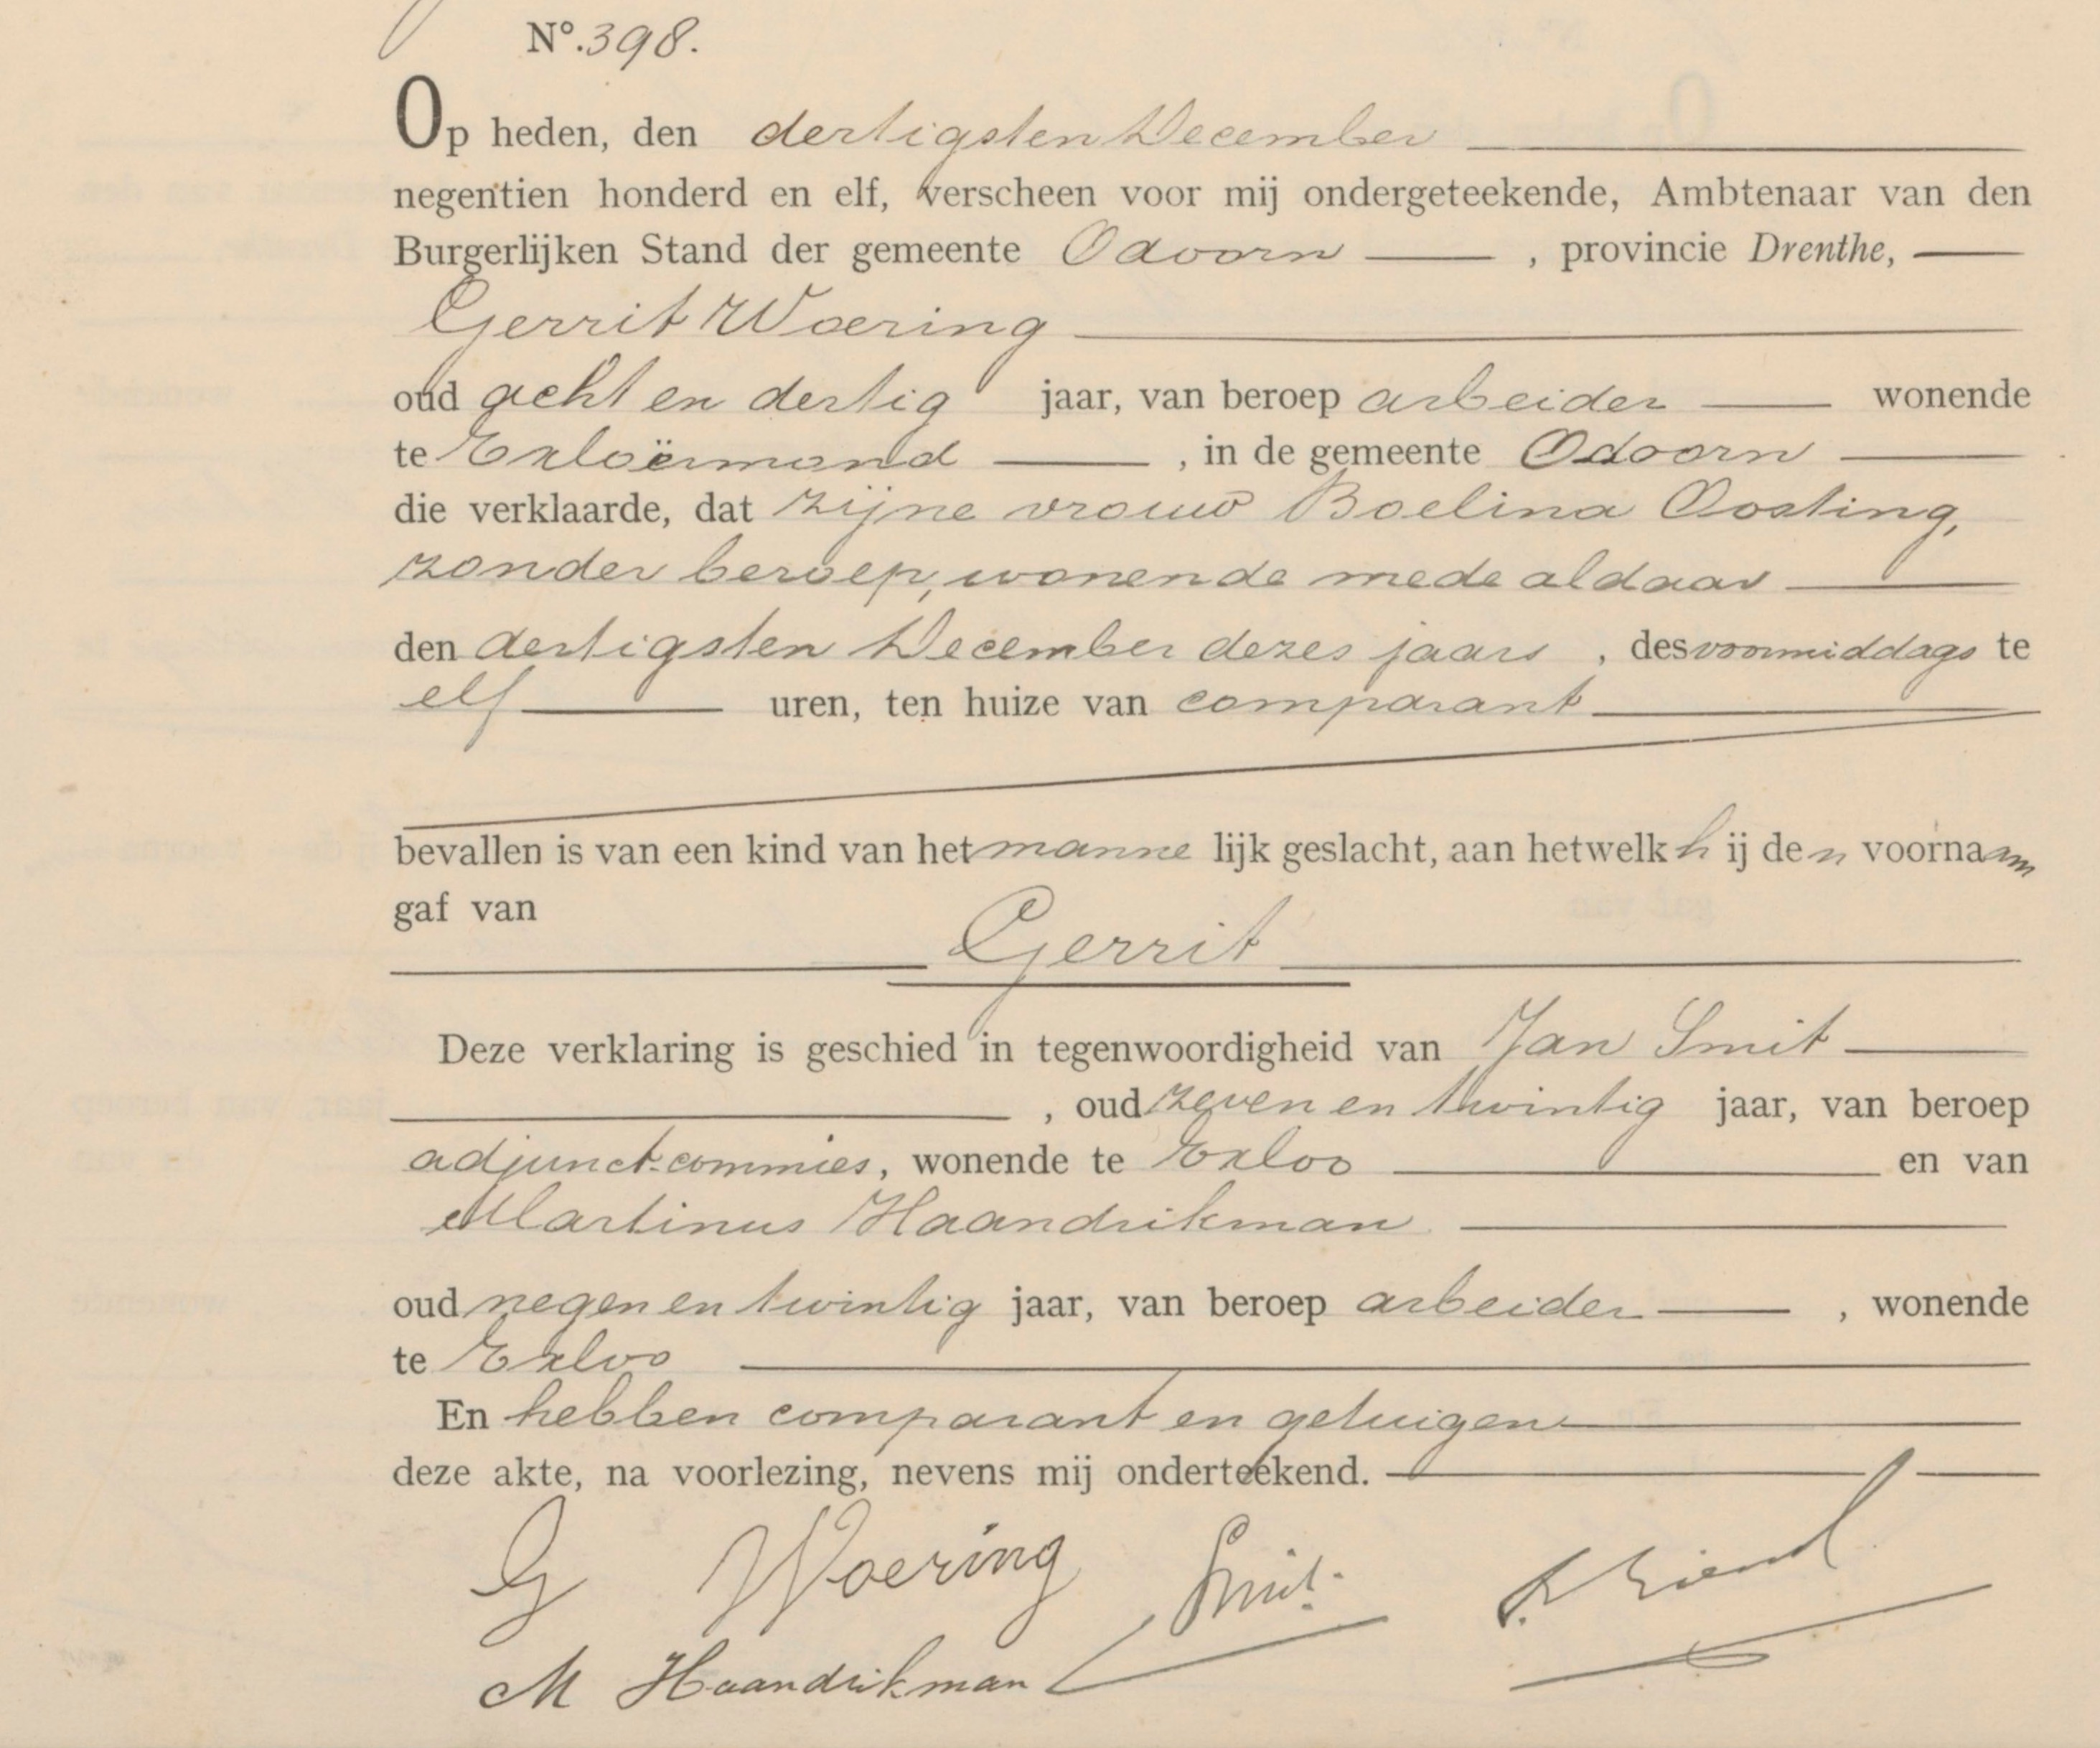 Nº. 398.
Op heden, den dertigsten December
negentien honderd en elf, verscheen voor mij ondergeteekende, Ambtenaar van den
Burgerlijken Stand der gemeente Odoorn , provincie Drenthe,
Gerrit Woering
oud acht en dertig jaar, van beroep arbeider wonende
te Exloërmond , in de gemeente Odoorn
die verklaarde, dat zijne vrouw Boelina Oosting,
zonder beroep, wonende mede aldaar
den dertigsten December dezes jaars , des voormiddags te
elf uren, ten huize van comparant
bevallen is van een kind van het mannelijk geslacht, aan hetwelk hij den voornaam
gaf van
Gerrit
Deze verklaring is geschied in tegenwoordigheid van Jan Smit
, oud zeven en twintig jaar, van beroep
adjunct-commies, wonende te Exloo en van
Martinus Haandrikman
oud negen en twintig jaar, van beroep arbeider , wonende
te Exloo
En hebben comparant en getuigen
deze akte, na voorlezing, nevens mij onderteekend.
G Woering Smit.
M Haandrikman